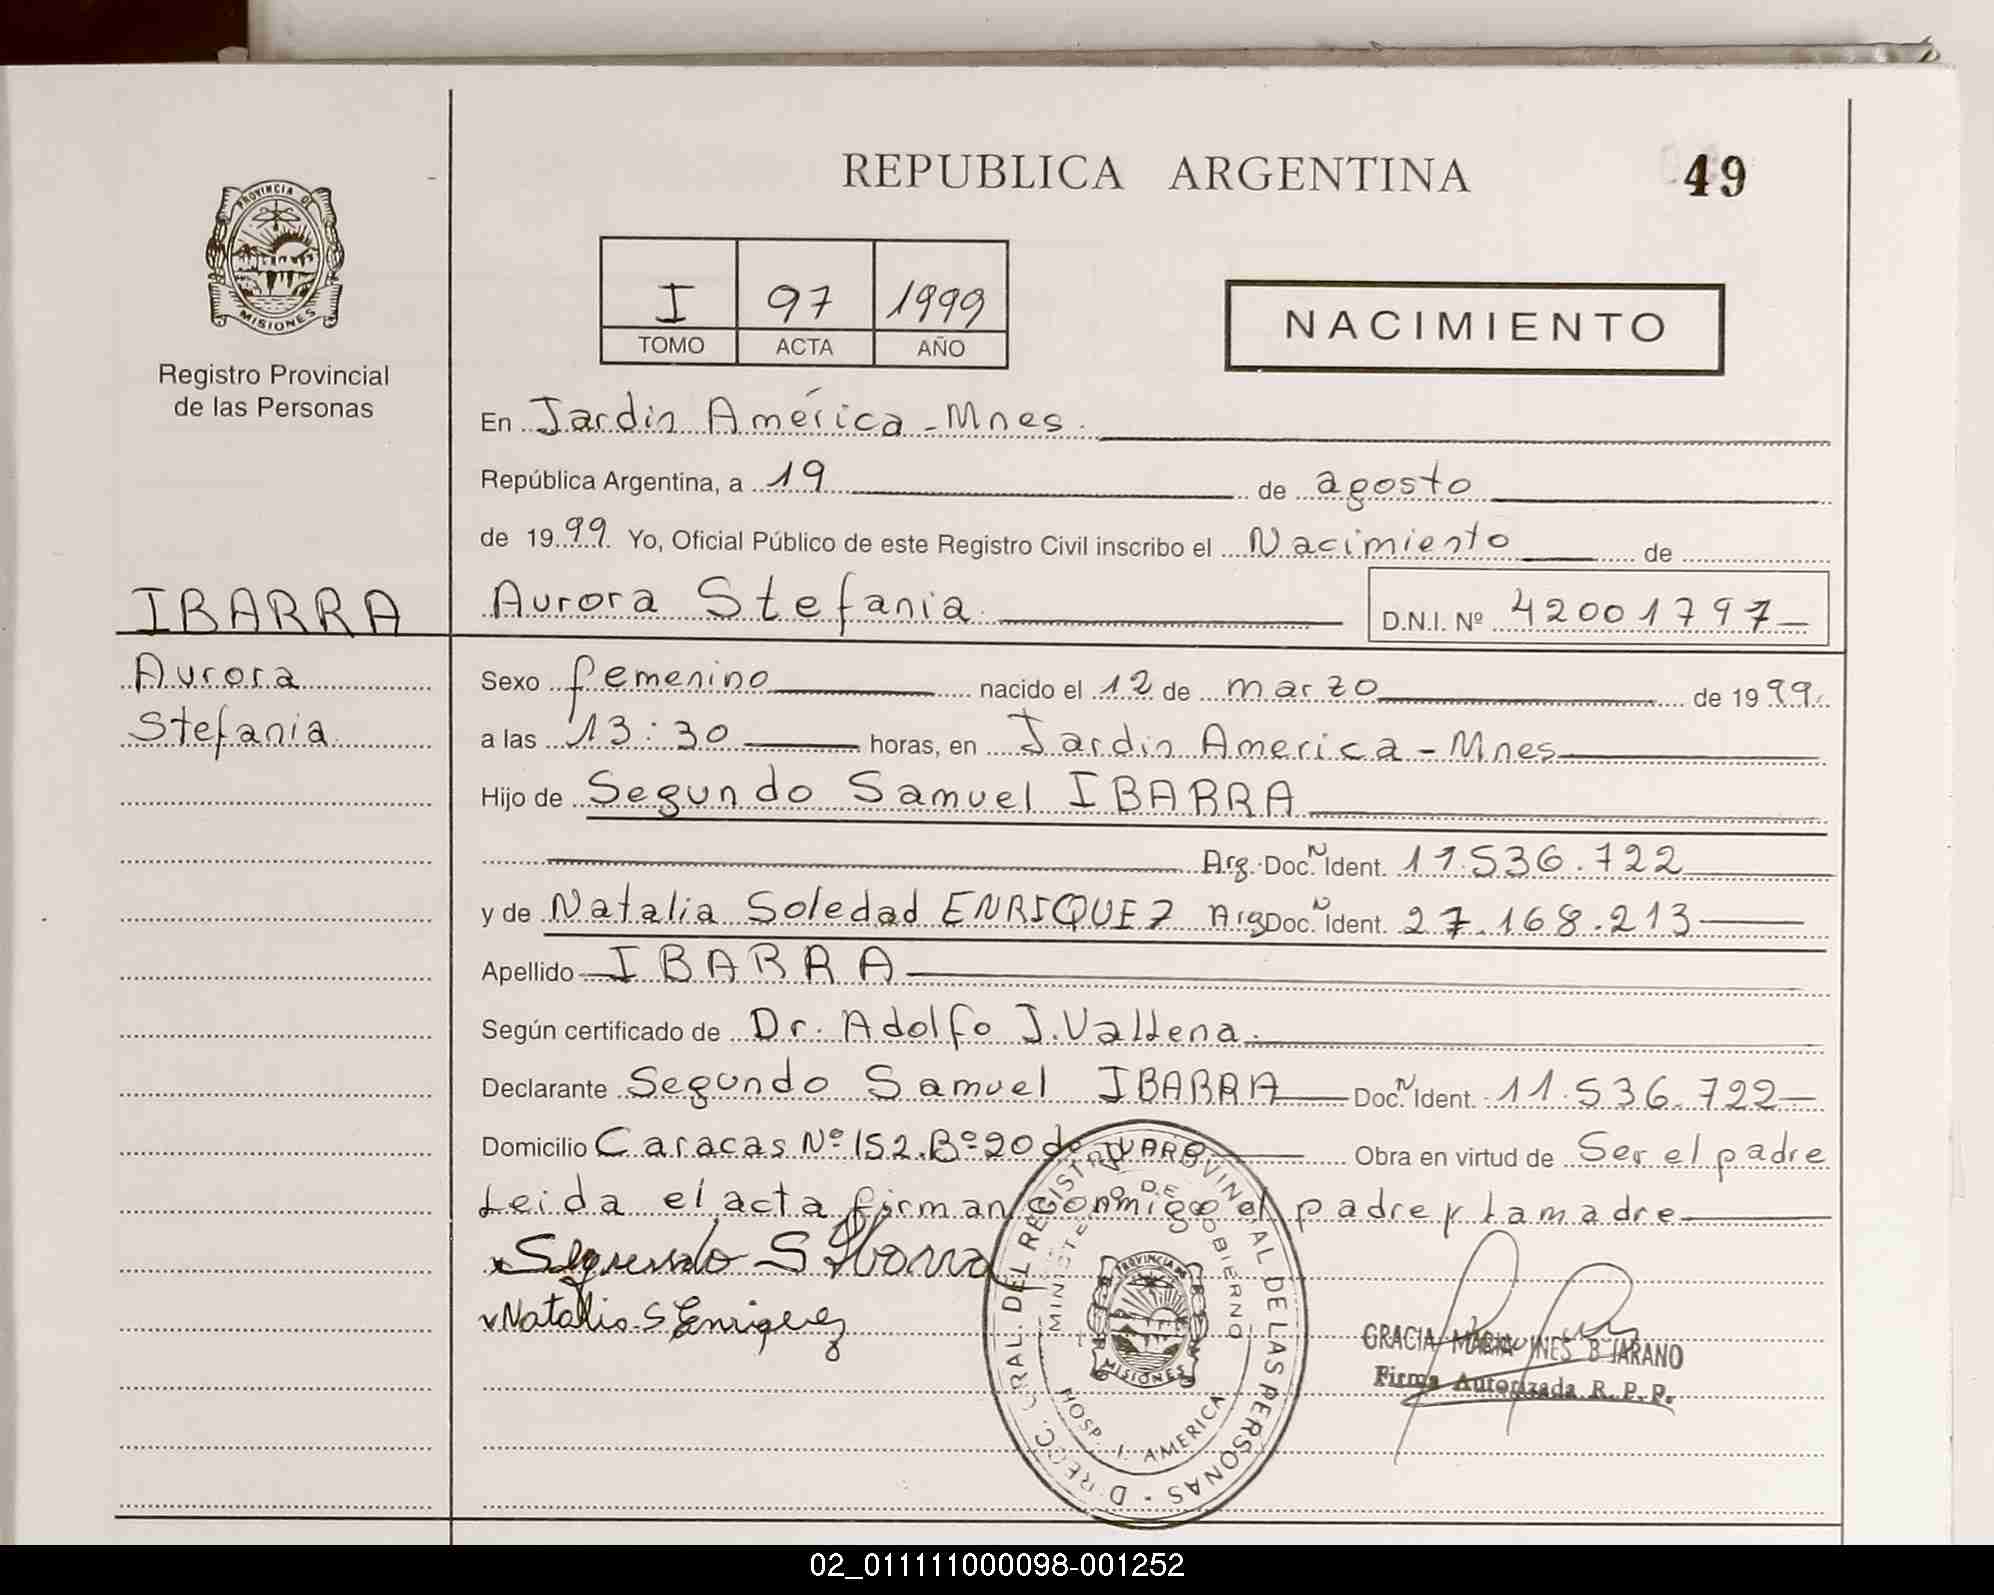 REPUBLICA ARGENTINA
49
PROVINCIA DE
MISIONES
Registro Provincial
de las Personas
I 97 1999
TOMO ACTA AÑO
NACIMIENTO
En Jardin América - Mnes.
República Argentina, a 19 de agosto
de 1999 Yo, Oficial Público de este Registro Civil inscribo el Nacimiento de
IBARRA
Aurora Stefania
Aurora Stefania D.N.I. Nº 42001797
Sexo femenino nacido el 12 de marzo de 1999
a las 13:30 horas, en Jardin America - Mnes
Hijo de Segundo Samuel IBARRA
Arg. Doc. N Ident. 11.536.722
y de Natalia Soledad ENRIQUEZ Arg Doc. N Ident. 27.168.213
Apellido IBARRA
Según certificado de Dr. Adolfo J.
Declarante Segundo Samuel IBARRA Doc. N Ident. 11.536.722
Domicilio Caracas Nº 152. Bº 20 de Obra en virtud de Ser el padre
Leida el acta firman conmigo el padre y la madre
Segundo S Ibarra
Natalia S Enriquez
DIRECC. GRAL. DEL REGISTRO PROVINCIAL DE LAS PERSONAS
MINISTERIO DE GOBIERNO
PROVINCIA DE
MISIONES
HOSP. J. AMERICA
GRACIA MARIA INES BEJARANO
Firma Autorizada R. P. P.
02_011111000098-001252